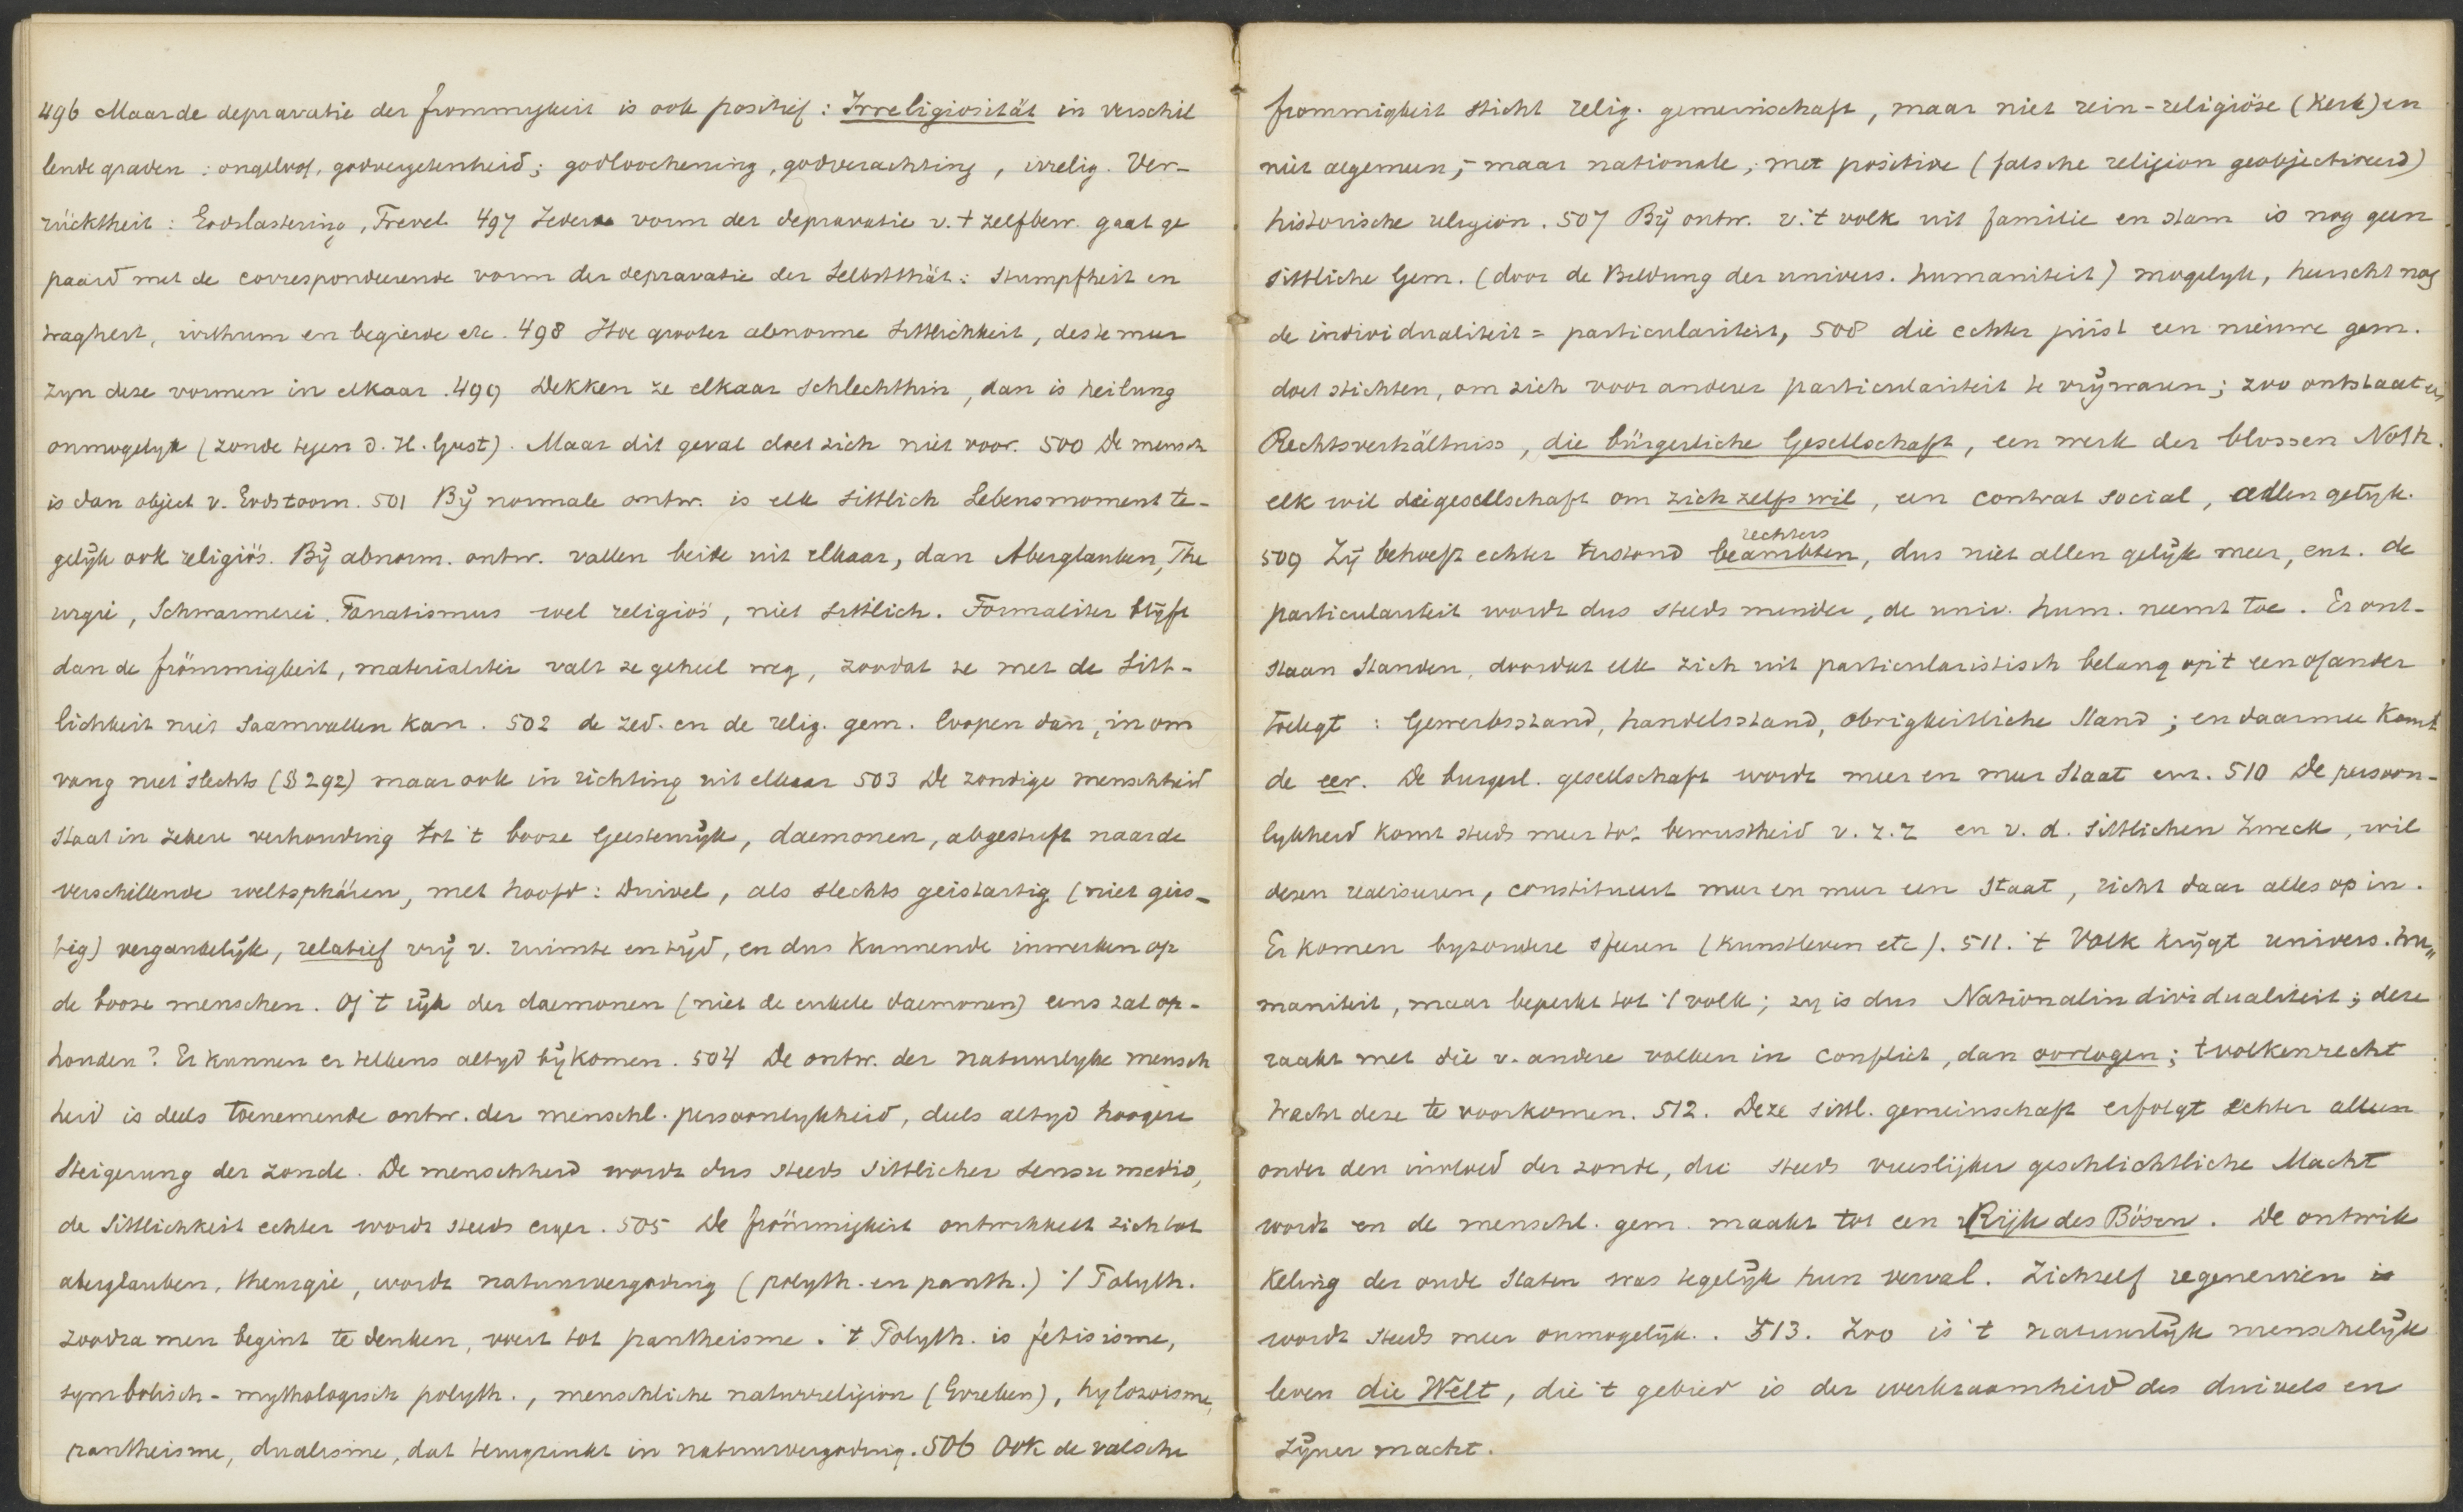 496 Maar de depravatie der frommigkeit is ook positief: Irreligiosität in verschil
lende graden: ongeloof, godvergetenheid; godloochening, godverachting, irrelig. Ver-
rücktheit: Godslastering, Frevel. 497 Iedere vorm der depravatie v. 't zelfbew. gaat ge
paard met de correspondeerende vorm der depravatie der Selbstthät.: Stumpfheit en
traagheit, irrthum en begierde etc. 498 Hoe grooter abnorme Sittlichkeit, des te meer
zyn deze vormen in elkaar. 499 Dekken ze elkaar schlechthin, dan is heilung
onmogelyk (zonde tegen d. H. Geest). Maar dit geval doet zich niet voor. 500 De mensch
is dan object v. Godstoorn. 501 Bij normale ontw. is elk sittlich Lebensmoment te-
gelijk ook religiös. Bij abnorm. ontw. vallen beide uit elkaar, dan Aberglauben, The
urgie, Schwarmerei. Fanatismus wel religiös, niet sittlich. Formaliter blijft
dan de frömmigkeit, materialiter valt ze geheel weg, zoodat ze met de Sitt-
lichkeit niet saamvallen kan. 502 de zed. en de relig. gem. loopen dan, in om
vang niet slechts (§ 292) maar ook in richting uit elkaar 503 De zondige menschheid
staat in zekere verhouding tot 't booze Geestenrijk, daemonen, abgestuft naar de
verschillende weltsphären, met hoofd: Duivel, als slechts geistartig (niet geis-
tig) vergankelijk, relatief vrij v. ruimte en tijd, en dus kunnende inwerken op
de booze menschen. Of 't rijk der daemonen (niet de enkele daemonen) eens zal op-
houden? Er kunnen er telkens altyd bijkomen. 504 De ontw. der natuurlyke mensch
heid is deels toenemende ontw. der menschl. persoonlykheid, deels altyd hoogere
Steigerung der zonde. De menschheid wordt dus steeds sittlicher sensu medio,
de Sittlichkeit echter wordt steeds erger. 505 De frömmigkeit ontwikkelt zich tot
aberglauben, theurgie, wordt natuurvergoding (polyth. en panth.) 't Polyth.
zoodra men begint te denken, voert tot pantheisme. 't Polyth. is fetisisme,
symbolisch-mythologisch polyth., menschliche naturreligion (Grieken), hylozoisme,
pantheisme, dualisme, dat terugzinkt in natuurvergoding. 506 Ook de valsche
frommigkeit sticht relig. gemeinschaft, maar niet rein-religiöse (Kerk) en
niet algemeen, - maar nationale, met positive (falsche religion geobjectiveerd)
historische religion. 507 Bij ontw. v. 't volk uit familie en stam is nog geen
sittliche Gem. (door de Bildung der univers. humaniteit) mogelyk, heerscht nog
de individualiteit = particulariteit, 508 die echter juist een nieuwe gem.
doet stichten, om zich voor anderer particulariteit te vrijwaren; zoo ontstaat er
Rechtsverhältniss, die bürgerliche Gesellschaft, een werk der blossen Noth.
elk wil die gesellschaft om zich zelfs wil, een contrat social, allen gelijk.
rechters
509 Zij behoeft echter terstond beambten, dus niet allen gelijk meer, enz. de
particulariteit wordt dus steeds minder, de univ. hum. neemt toe. Er ont-
staan Standen, doordat elk zich uit particularistisch belang op 't een of ander
toelegt: Gewerbsstand, handelsstand, obrigkeitliche Stand; en daarmee komt
de eer. De burgerl. gesellschaft wordt meer en meer Staat enz. 510 De persoon-
lykheid komt steeds meer tot bewustheid v. z. z en v. d. sittlichen Zweck, wil
dezen realiseeren, constitueert meer en meer een Staat, richt daar alles op in.
Er komen byzondere sferen (kunstleven etc). 511. 't Volk krijgt univers. hu„
maniteit, maar beperkt tot 't volk; zy is dus Nationalindividualiteit; deze
raakt met die v. andere volken in conflict, dan oorlogen; 't volkenrecht
tracht deze te voorkomen. 512. Deze sittl. gemeinschaft erfolgt echter alleen
onder den invloed der zonde, die steeds vreeslijker geschlichtliche Macht
wordt en de menschl. gem. maakt tot een Rijk des Bösen. De ontwik
keling der oude Staten was tegelijk hun verval. Zichzelf regenereren is
wordt steeds meer onmogelijk. 513. Zoo is 't natuurlijk menschelijk
leven die Welt, die 't gebied is der werkzaamheid des duivels en
zijner macht.